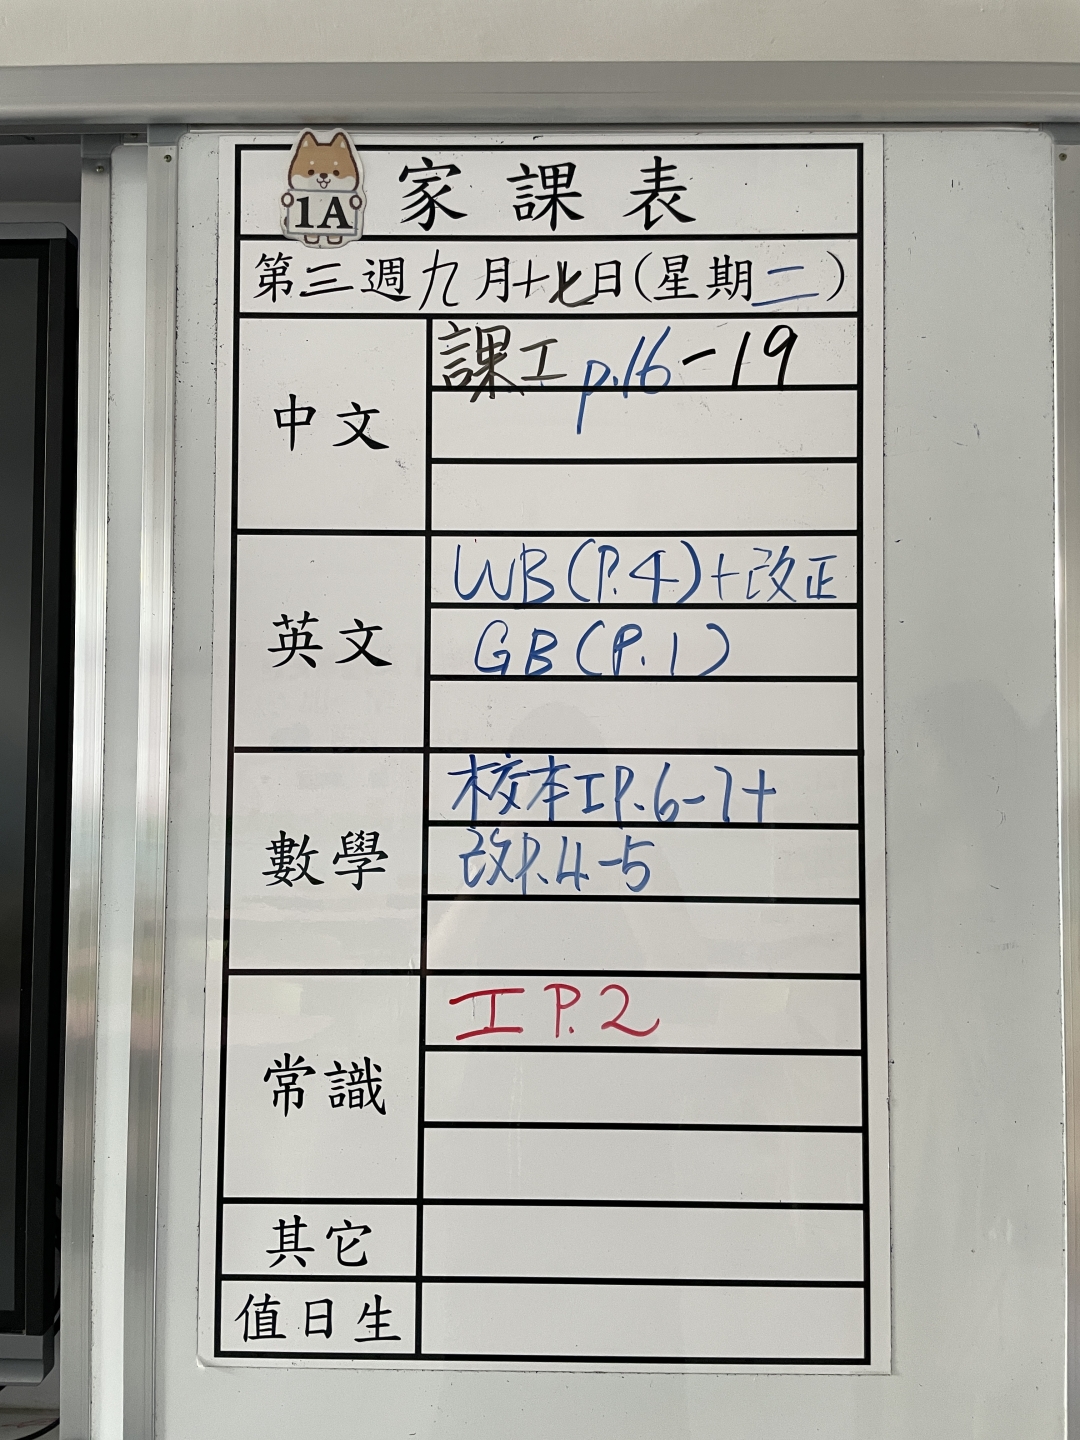 1A
家課表
第三週九月十七日(星期二)
中文
課工p.16-19
英文
WB(P.4)+改正
GB(P.1)
數學
校本工P.6-7+
改P.4-5
常識
工P.2
其它
值日生